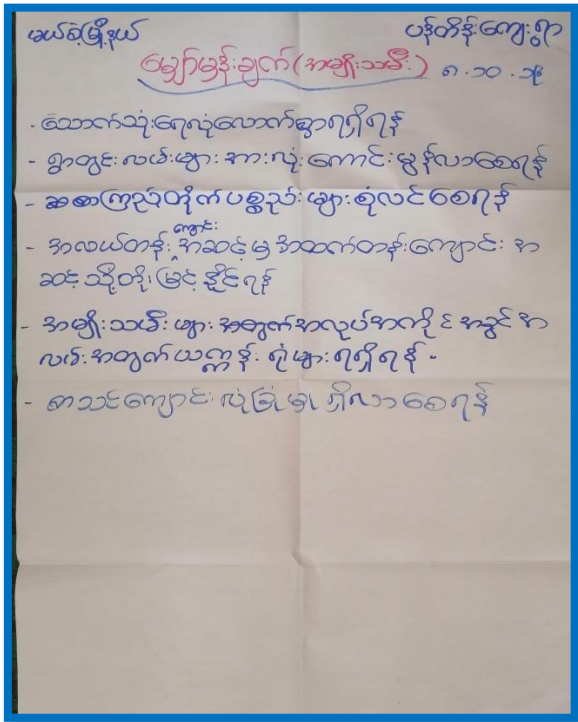 မယ်စဲ့မြို့နယ် ပန်တိန်းကျေးရွာ
မျှော်မှန်းချက် (အမျိုးသမီး) ၈.၁၀.၁၃
- သောက်သုံးရေလုံလောက်စွာရရှိရန်
- ရွာတွင်းလမ်းများအားလုံးကောင်းမွန်လာစေရန်
- စာကြည့်တိုက်ပစ္စည်းများစုံလင်စေရန်
- အလယ်တန်းကျောင်းအဆင့်မှ အထက်တန်းကျောင်း အ
ဆင့်သို့တိုးမြှင့်နိုင်ရန်
- အမျိုးသမီးများအတွက်အလုပ်အကိုင်အခွင့်အ
လမ်းအတွက်ယက္ကန်းရုံများရရှိရန် -
- စာသင်ကျောင်းလုံခြုံမှုရှိလာစေရန်